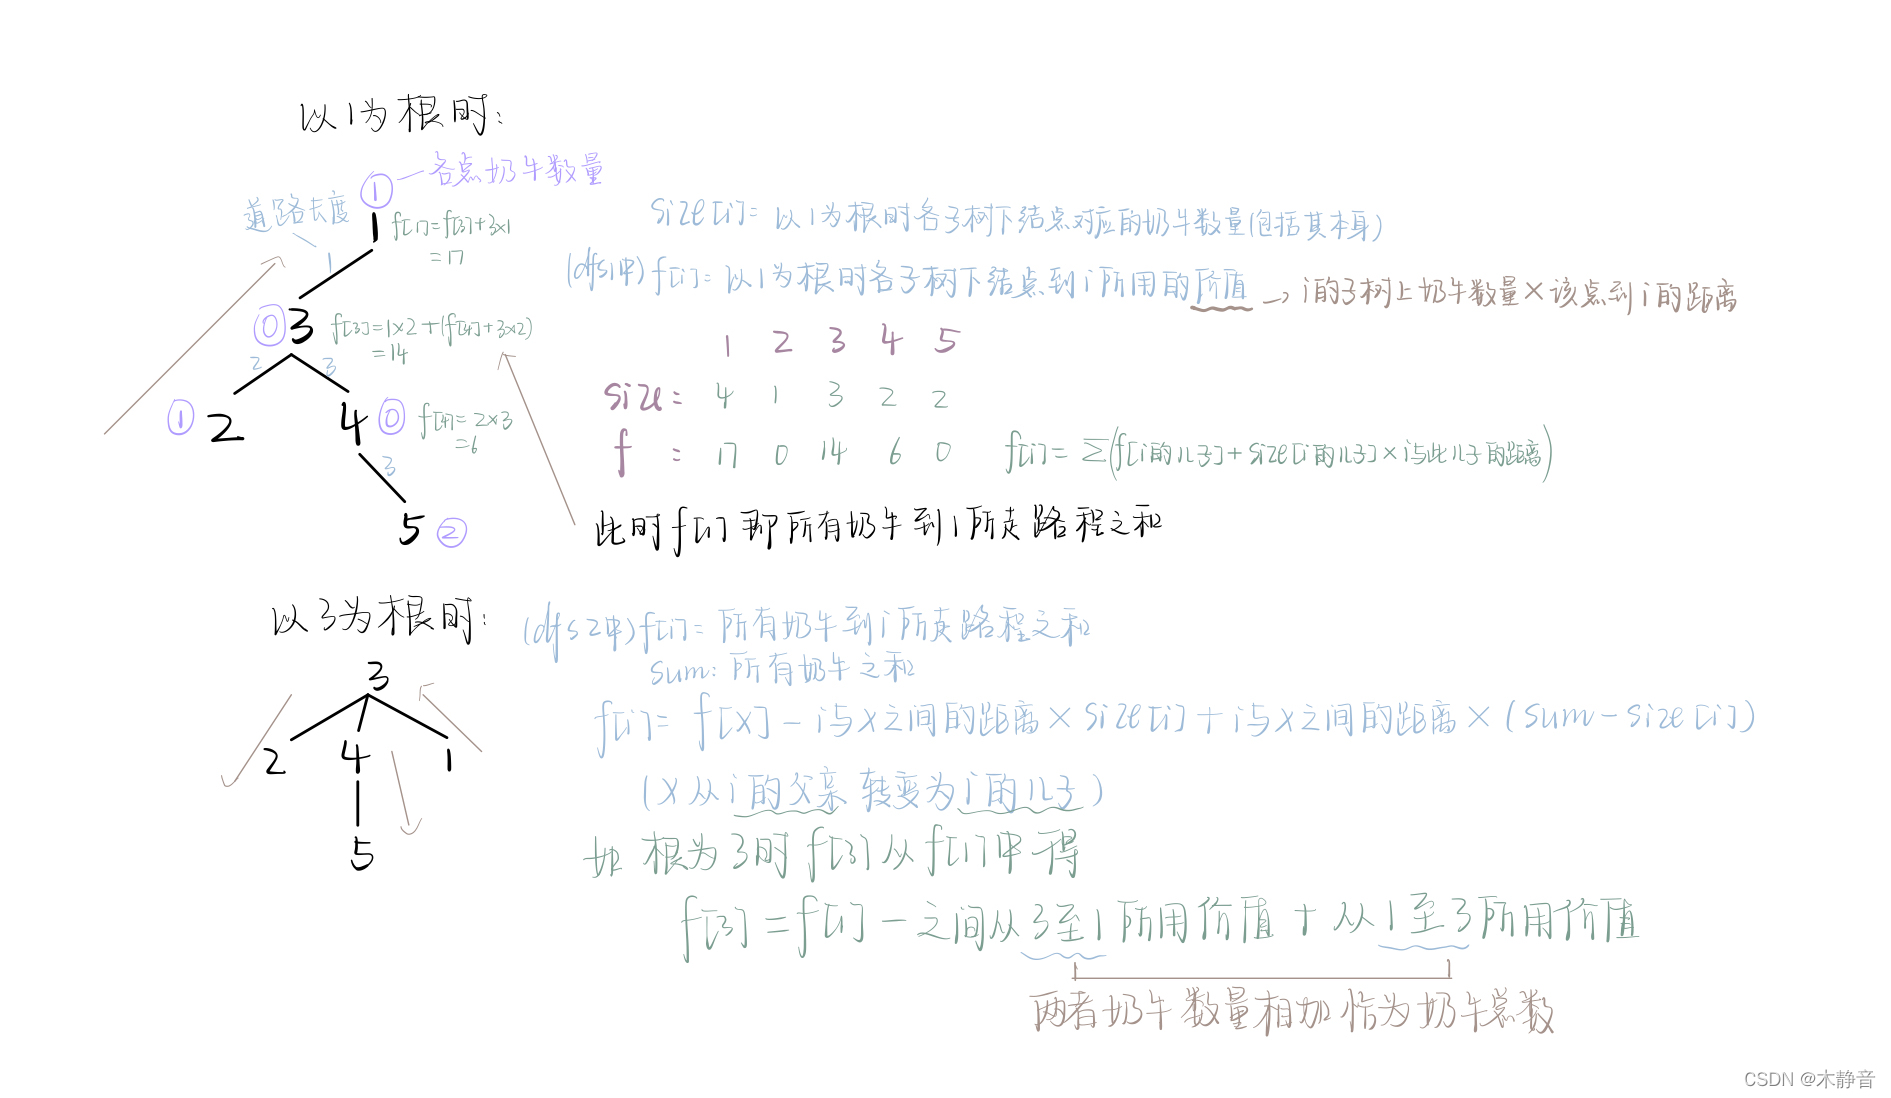 以1为根时：
①—各点奶牛数量
道路长度
1 f[1]=f[3]+3×1
=17
1
⓪ 3 f[3]=1×2+(f[4]+3×2)
=14
2 3
① 2 4 ⓪ f[4]=2×3
=6
3
5 ②
size[i]= 以1为根时各子树下结点对应的奶牛数量(包括其本身)
(dfs1中) f[i]= 以1为根时各子树下结点到i所用的价值 → i的子树上奶牛数量×该点到i的距离
1 2 3 4 5
size: 4 1 3 2 2
f : 17 0 14 6 0 f[i]= Σ(f[i的儿子]+size[i的儿子]×i与此儿子的距离)
此时f[1]即所有奶牛到1所走路程之和
以3为根时：
3
2 4 1
5
(dfs2中)f[i]= 所有奶牛到i所走路程之和
sum: 所有奶牛之和
f[i]= f[x]-i与x之间的距离×size[i]+i与x之间的距离×(sum-size[i])
(x从i的父亲转变为i的儿子)
如 根为3时f[3]从f[1]中得
f[3]=f[1]-之间从3至1所用价值+从1至3所用价值
两者奶牛数量相加恰为奶牛总数
CSDN @木静音